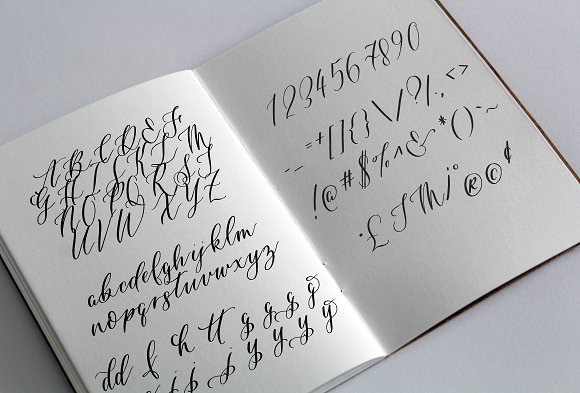 A B C D E F
G H I J K L M
N O P Q R S T
U V W X Y Z
abcdefghijklm
nopqrstuvwxyz
dd f h tt g g g g
j j j y y y y
1234567890
- _ = + [ ] { } \ / ? | . , < >
! @ # $ % ^ & * ( ) - ~
· £ T M i ° ® © ¢